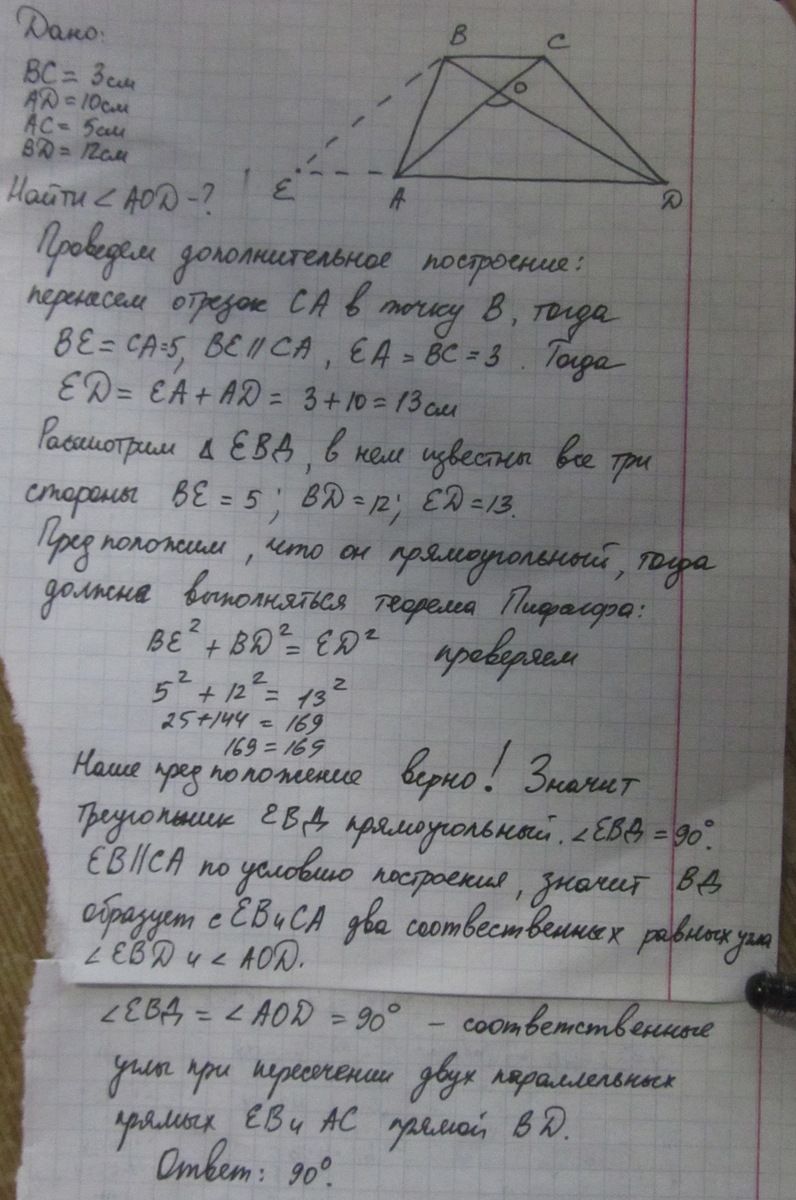 Дано:
BC = 3см
AD = 10см
AC = 5см
BD = 12см
Найти ∠ AOD - ?
B
C
O
E
A
D
Проведем дополнительное построение:
перенесем отрезок CA в точку B, тогда
BE = CA = 5, BE || CA, EA = BC = 3. Тогда
ED = EA + AD = 3 + 10 = 13 см
Рассмотрим Δ EBД, в нем известны все три
стороны BE = 5; BD = 12; ED = 13.
Предположим, что он прямоугольный, тогда
должна выполняться теорема Пифагора:
BE² + BD² = ED² проверяем
5² + 12² = 13²
25 + 144 = 169
169 = 169
Наше предположение верно! Значит
треугольник EBД прямоугольный. ∠EBД = 90°.
EB || CA по условию построения, значит BД
образует с EB и CA два соотвественных равных угла
∠ EBD и ∠ AOD.
∠EBД = ∠AOD = 90° – соответственные
углы при пересечении двух параллельных
прямых EB и AC прямой BD.
Ответ: 90°.